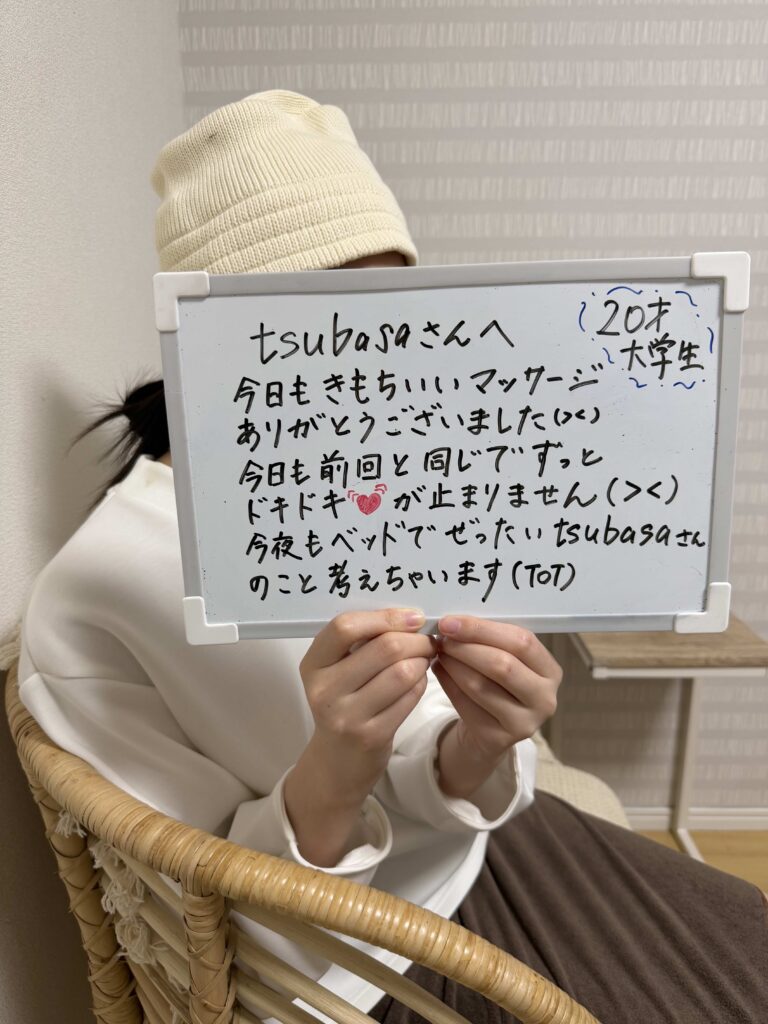 20才
大学生
tsubasaさんへ
今日もきもちいいマッサージ
ありがとうございました(><)
今日も前回と同じでずっと
ドキドキ💓が止まりません(><)
今夜もベッドでぜったいtsubasaさん
のこと考えちゃいます(ToT)